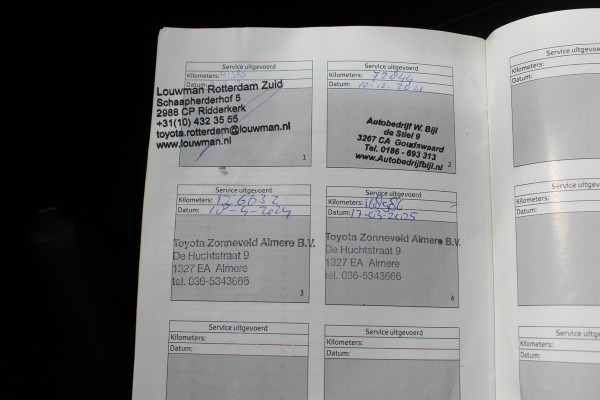 Service uitgevoerd
Kilometers:
Datum:
Louwman Rotterdam Zuid
Schaapherderhof 5
2988 CP Ridderkerk
+31(10) 432 35 55
toyota.rotterdam@louwman.nl
www.louwman.nl
1
Service uitgevoerd
Kilometers: 72044
Datum: 10-12-2021
Autobedrijf W. Bijl
de Stiel 9
3267 CA Goudswaard
Tel. 0186 - 693 313
www.Autobedrijfbijl.nl
2
Service uitgevoerd
Kilometers: 126632
Datum: 18-4-2024
Toyota Zonneveld Almere B.V.
De Huchtstraat 9
1327 EA Almere
tel. 036-5343665
3
Service uitgevoerd
Kilometers:
Datum: 17-03-2025
Toyota Zonneveld Almere B.V.
De Huchtstraat 9
1327 EA Almere
tel. 036-5343665
4
Service uitgevoerd
Kilometers:
Datum:
Service uitgevoerd
Kilometers:
Datum:
Service uitgevoerd
Kilometers:
Datum:
Service uitgevoer
Kilometers:
Datum:
Service
Kilometers:
Datum: